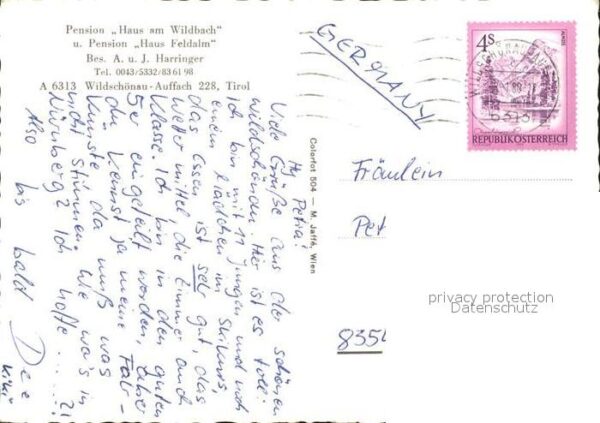 Pension „Haus am Wildbach"
u. Pension „Haus Feldalm"
Bes. A. u. J. Harringer
Tel. 0043/5332/83 61 98
A 6313 Wildschönau-Auffach 228, Tirol
Hy Petra!
Viele Grüße aus der schönen
Wildschönau. Hier ist es toll.
Ich bin mit 11 Jungen und noch
einem Mädchen im Skikurs,
das Essen ist sehr gut, das
Wetter mittel, die Zimmer auch
Klasse. Ich bin in den guten
5er eingeteilt worden, aber
du kennst ja meine Fahr-
künste da muß was
nicht stimmen. Wie wa's in
Nürnberg? Ich hoffe .... ?!
Also bis bald Dee
Colorfot 504 — M. Jaffé, Wien
GERMANY
4S
ALMSEE
REPUBLIK ÖSTERREICH
6313
Fräulein
Pet
privacy protection
Datenschutz
835